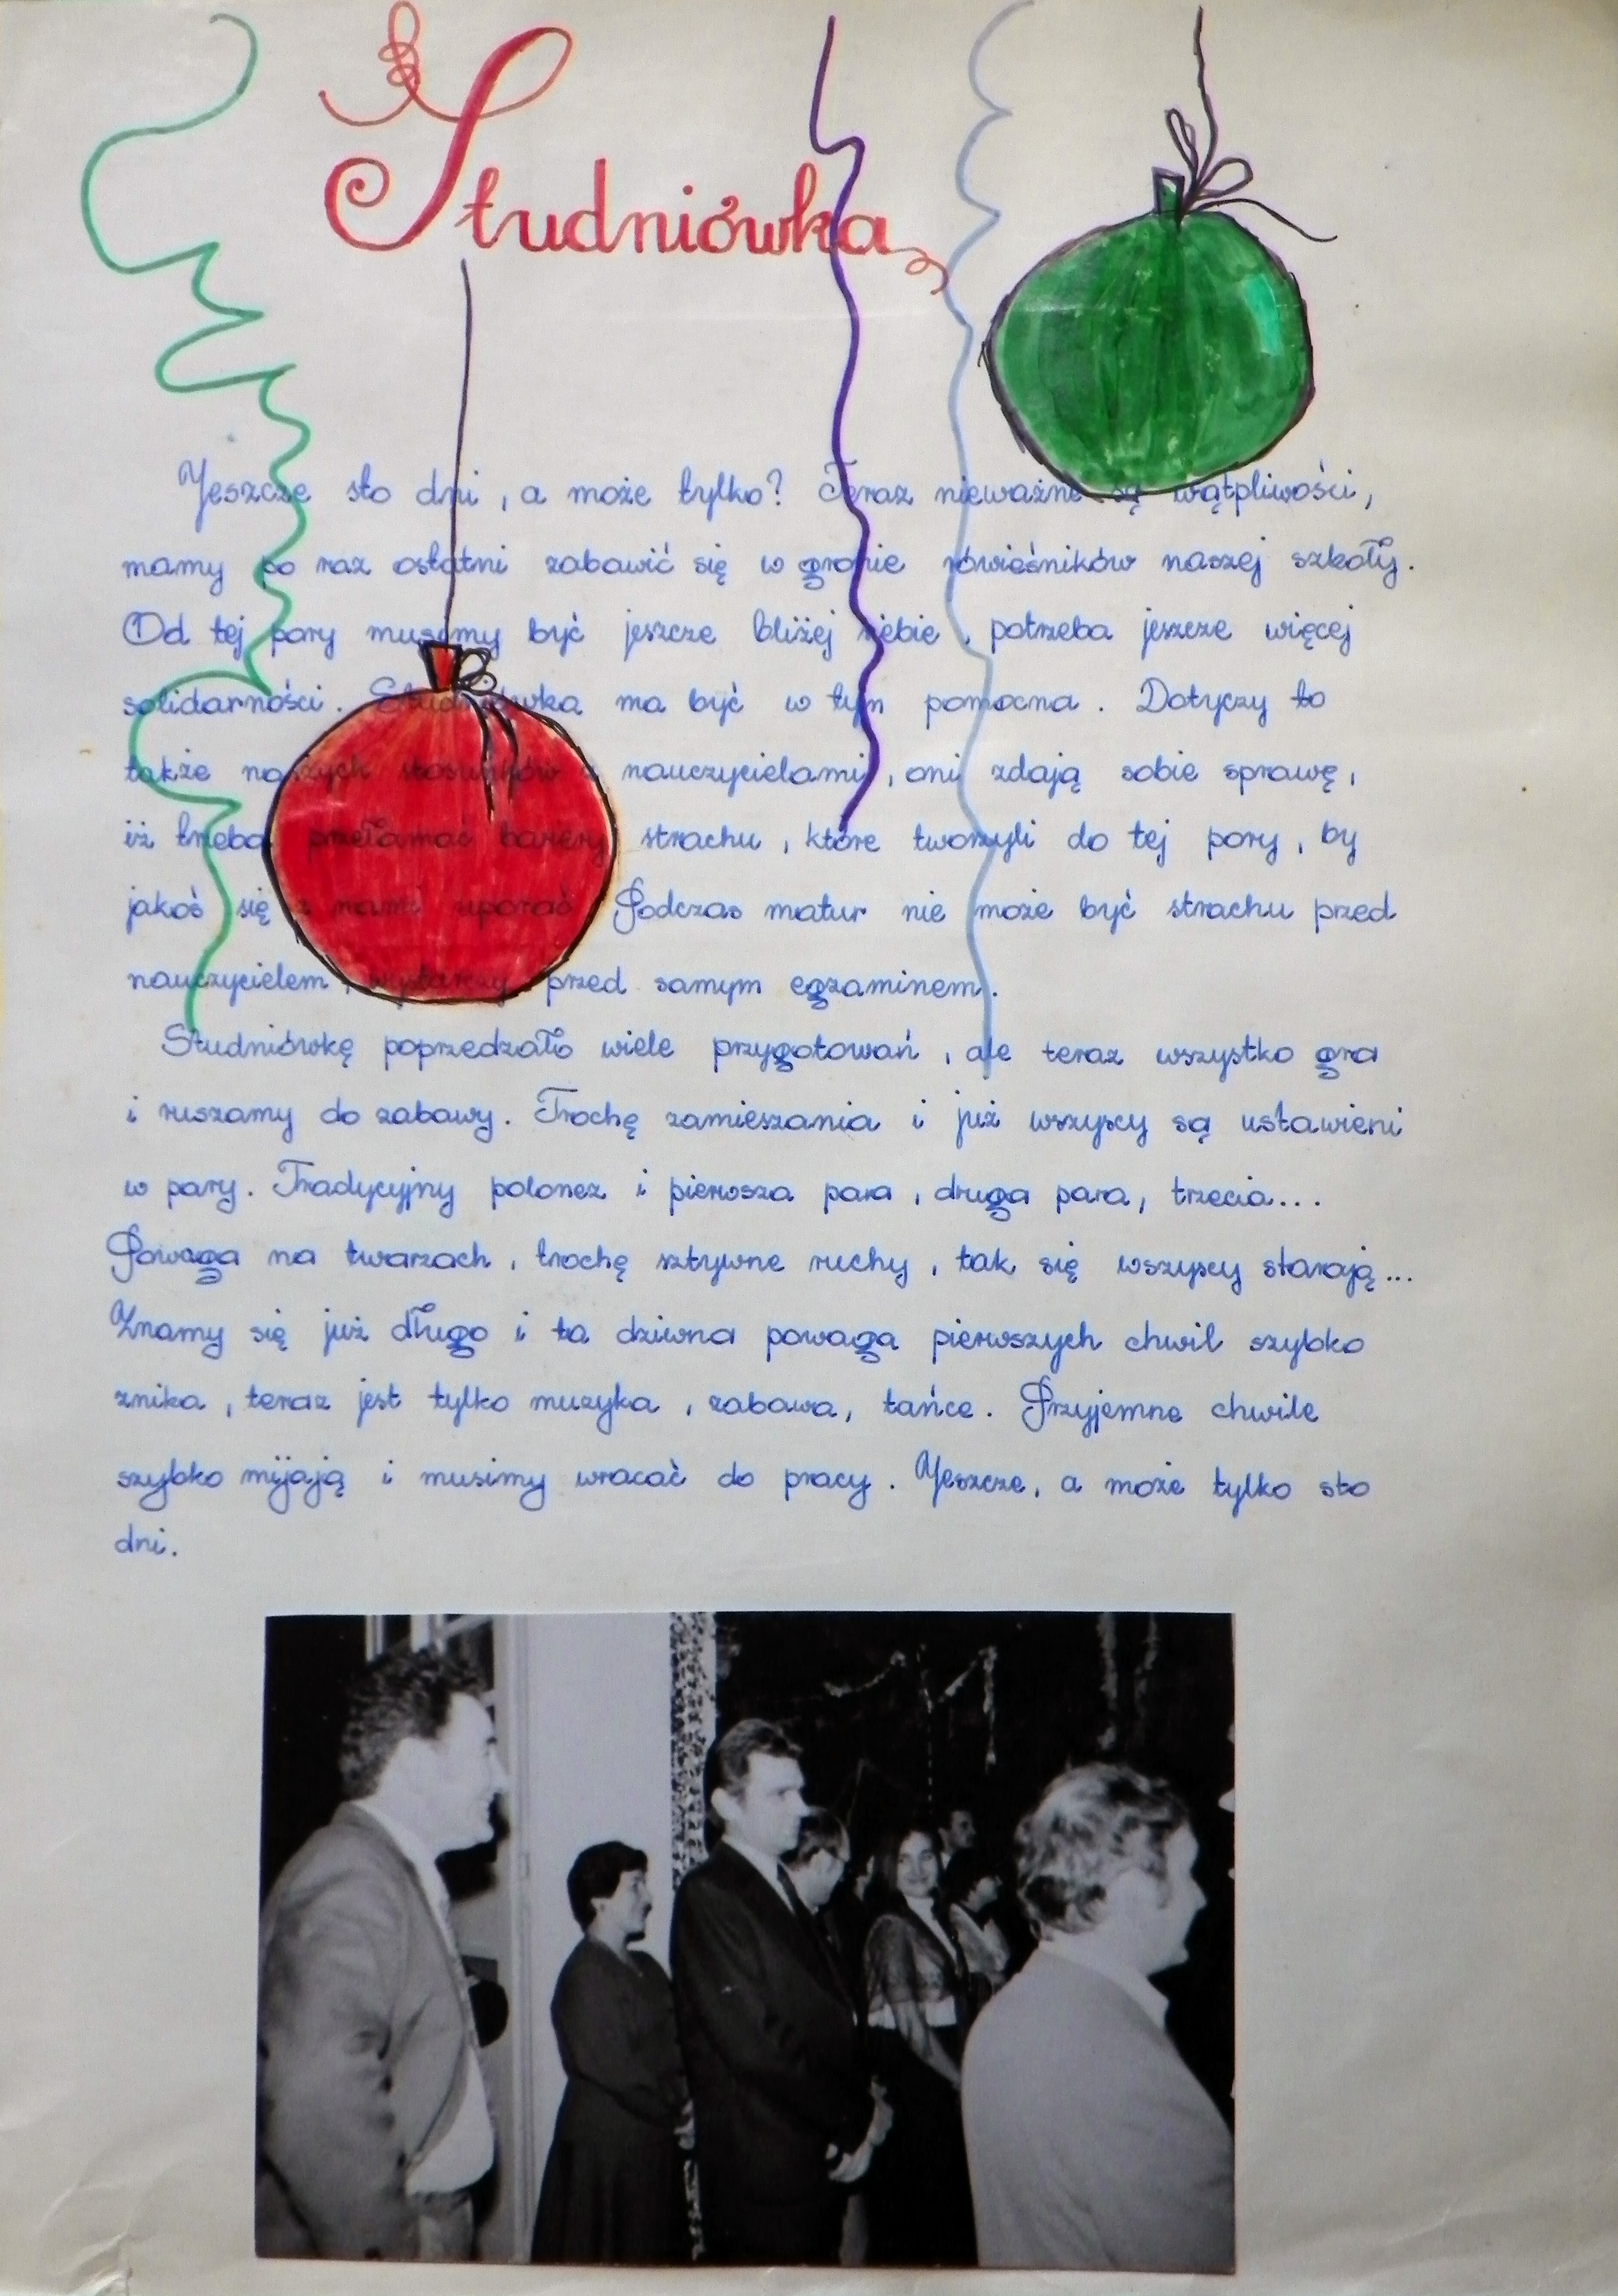 Studniówka
Jeszcze sto dni, a może tylko? Teraz nieważne są wątpliwości,
mamy po raz ostatni zabawić się w gronie rówieśników naszej szkoły.
Od tej pory musimy być jeszcze bliżej siebie, potrzeba jeszcze więcej
solidarności. Studniówka ma być w tym pomocna. Dotyczy to
także naszych stosunków z nauczycielami, oni zdają sobie sprawę,
iż trzeba przełamać bariery strachu, które tworzyli do tej pory, by
jakoś się z nami uporać. Podczas matur nie może być strachu przed
nauczycielem, wystarczy przed samym egzaminem.
Studniówkę poprzedzało wiele przygotowań, ale teraz wszystko gra
i ruszamy do zabawy. Trochę zamieszania i już wszyscy są ustawieni
w pary. Tradycyjny polonez i pierwsza para, druga para, trzecia...
Powaga na twarzach, trochę sztywne ruchy, tak się wszyscy starają...
Znamy się już długo i ta dziwna powaga pierwszych chwil szybko
znika, teraz jest tylko muzyka, zabawa, tańce. Przyjemne chwile
szybko mijają i musimy wracać do pracy. Jeszcze, a może tylko sto
dni.